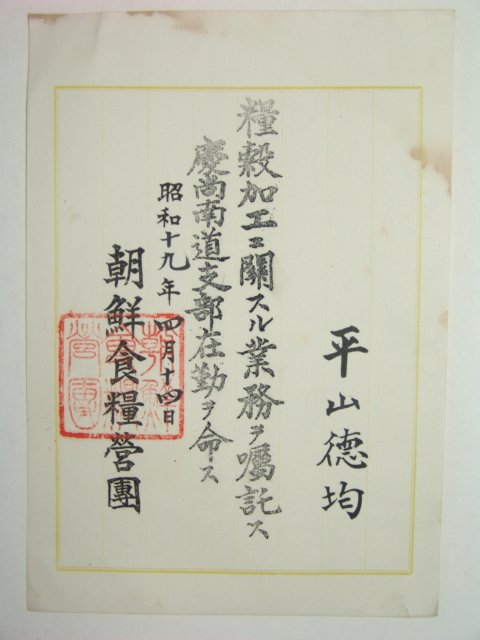 平山德均
糧穀加工ニ關スル業務ヲ囑託ス
慶尚南道支部在勤ヲ命ス
昭和十九年四月十四日
朝鮮食糧營團